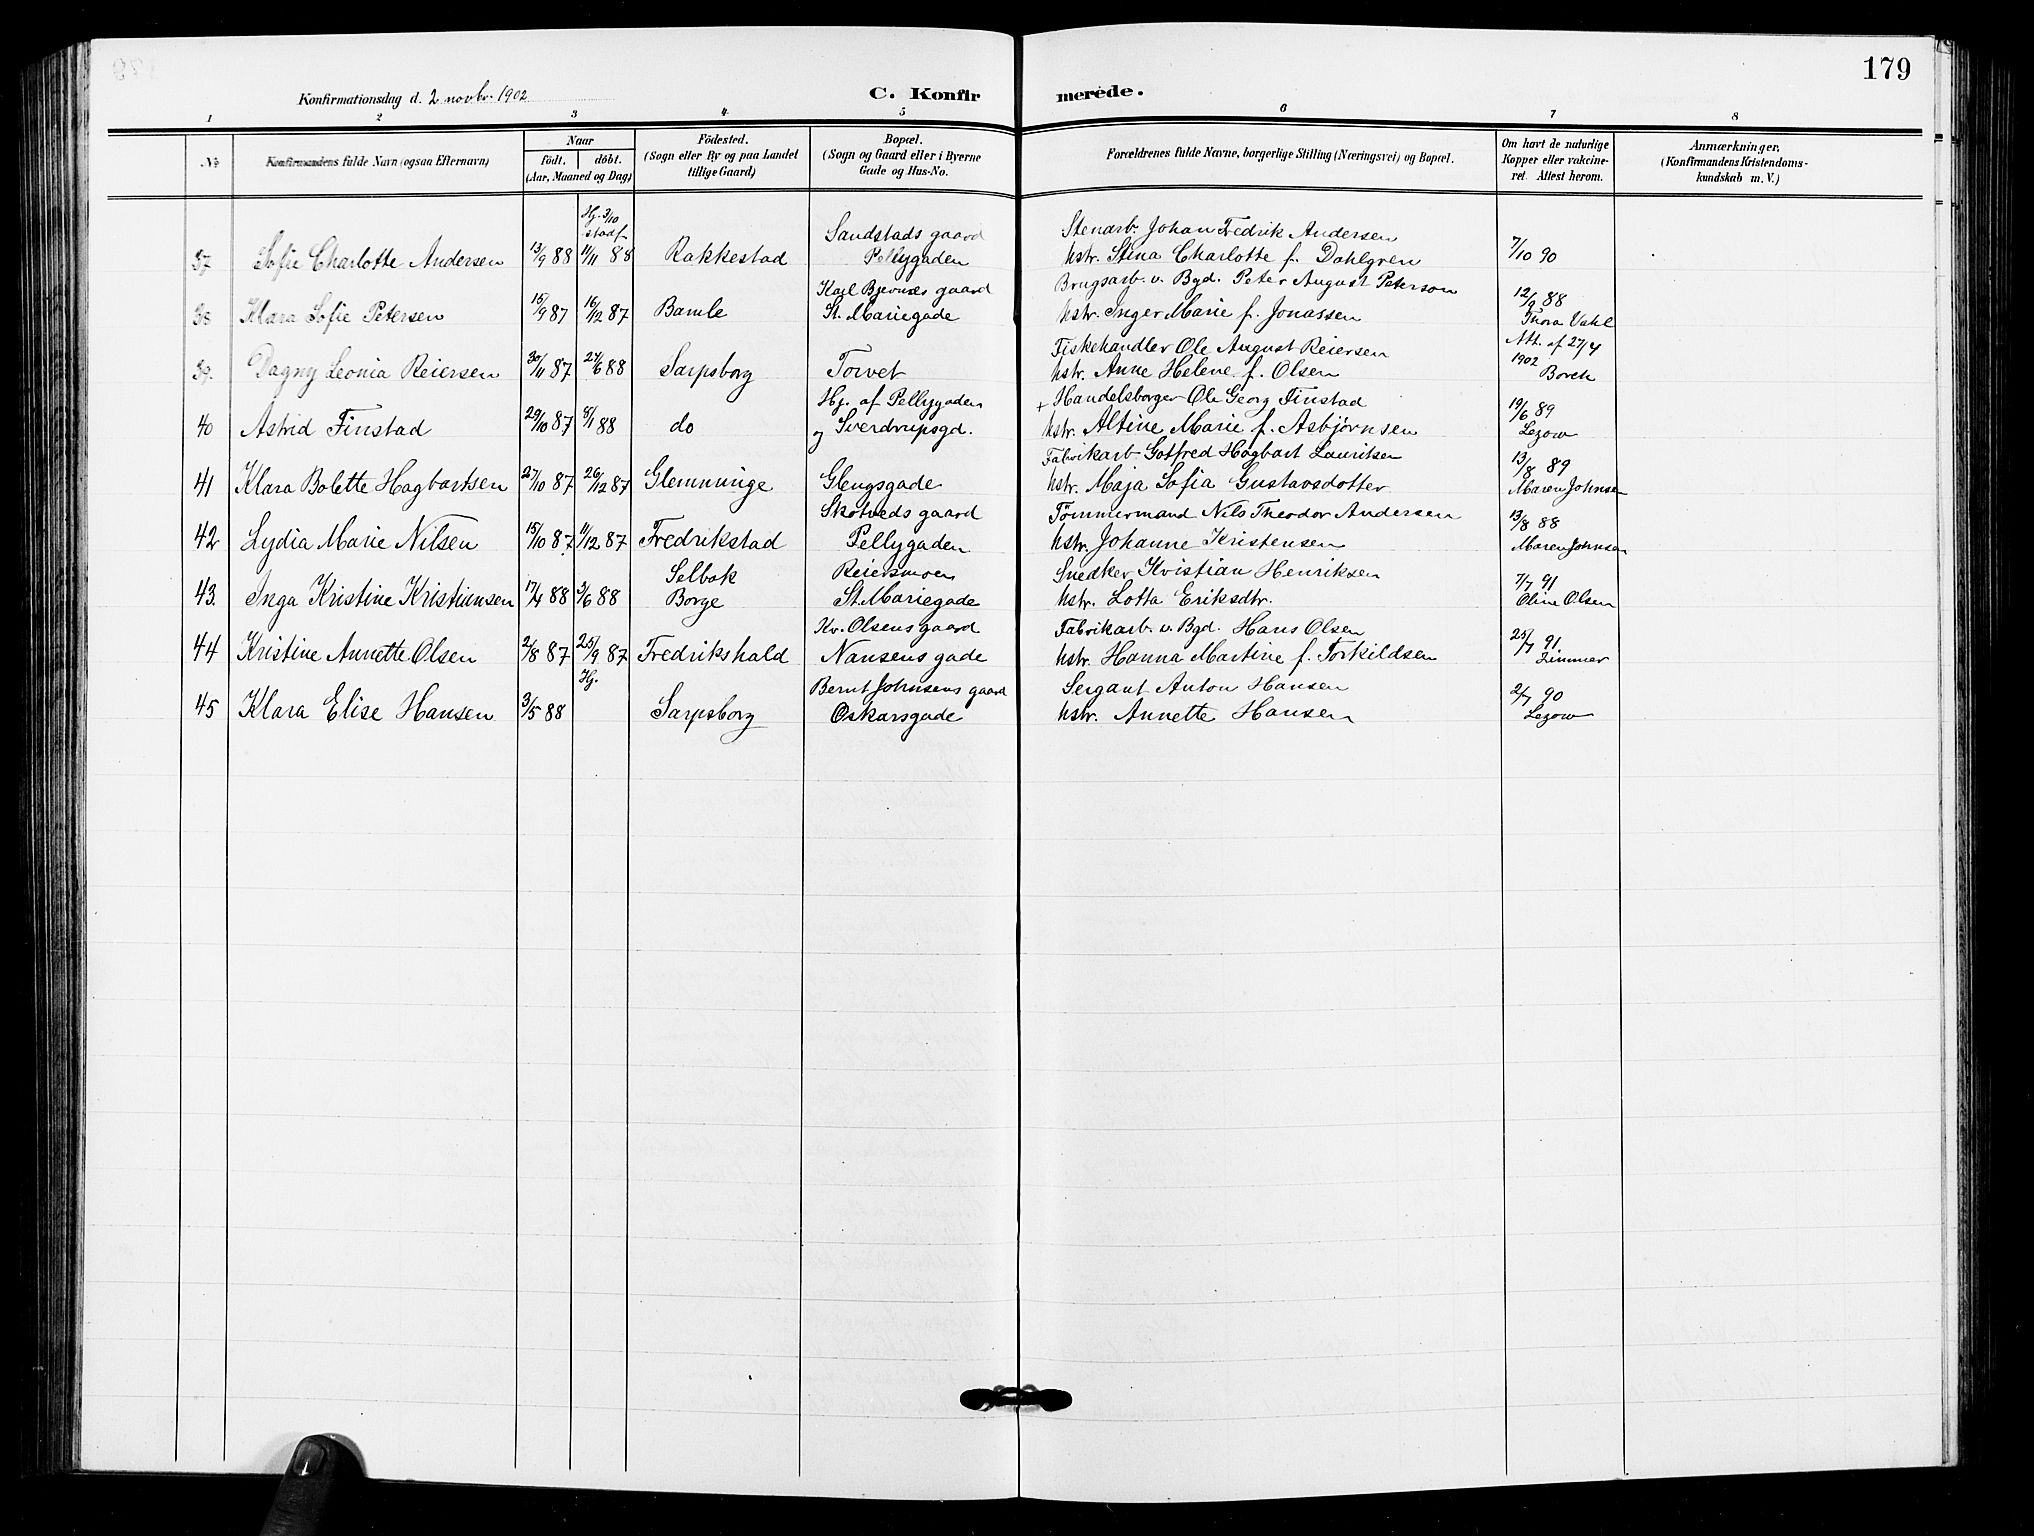 179
Konfirmationsdag d. 2 novbr. 1902
C. Konfirmerede.
1 2 3 4 5 6 7 8
No
Konfirmandens fulde Navn (ogsaa Efternavn)
Naar
födt. döbt.
(Aar, Maaned og Dag)
Födested.
(Sogn eller By og paa Landet
tillige Gaard)
Bopæl.
(Sogn og Gaard eller i Byerne
Gade og Hus-No.
Forældrenes fulde Navne, borgerlige Stilling (Næringsvei) og Bopæl.
Om havt de naturlige
Kopper eller vakcine-
ret. Attest herom.
Anmærkninger,
(Konfirmandens Kristendoms-
kundskab m. V.)
Hj. 3/10
stadf. Sandstads gaard Stenarb. Johan Fredrik Andersen
37 Sofie Charlotte Andersen 13/9 88 11/11 88 Rakkestad Pellygaden hstr. Stina Charlotte f. Dahlgren 7/10 90
Karl Bjernæs gaard Brugsarb. v. Bgd. Peter August Peterson 12/9 88
38 Klara Sofie Petersen 15/9 87 16/12 87 Bamle St. Mariegade hstr. Inger Marie f. Jonassen Thora Vahl
Fiskehandler Ole August Reiersen Att. af 27/4
39. Dagny Leonia Reiersen 30/11 87 24/6 88 Sarpsborg Torvet hstr. Anne Helene f. Olsen 1902 Borch
Hj. af Pellygaden + Handelsborger Ole Georg Finstad 19/6 89
40 Astrid Finstad 29/10 87 8/1 88 do og Sverdrupsgd. hstr. Altine Marie f. Asbjørnsen Lezow
Fabrikarb. Gotfred Hagbart Lauritsen 13/8 89
41 Klara Bolette Hagbartsen 27/10 87 26/12 87 Glemminge Glengsgade hstr. Maja Sofia Gustavsdotter Maren Johnsen
Skotveds gaard Tömmermand Nils Theodor Andersen 13/8 88
42 Lydia Marie Nilsen 15/10 87 11/12 87 Fredrikstad Pellygaden hstr. Johanne Kristensen Maren Johnsen
Selbak Reiersmoen Snedker Kristian Henriksen 7/7 91
43. Inga Kristine Kristiansen 17/4 88 3/6 88 Borge St. Mariegade hstr. Lotta Eriksdtr. Oline Olsen
Kr. Olsens gaard Fabrikarb. v. Bgd. Hans Olsen 25/7 91
44 Kristine Annette Olsen 2/8 87 25/9 87 Fredrikshald Nansens gade hstr. Hanna Martine f. Torkildsen Zimmer
Hj. Bernt Johnsens gaard Sergant Anton Hansen 2/7 90
45 Klara Elise Hansen 3/5 88 Sarpsborg Oskarsgade hstr. Annette Hansen Lezow